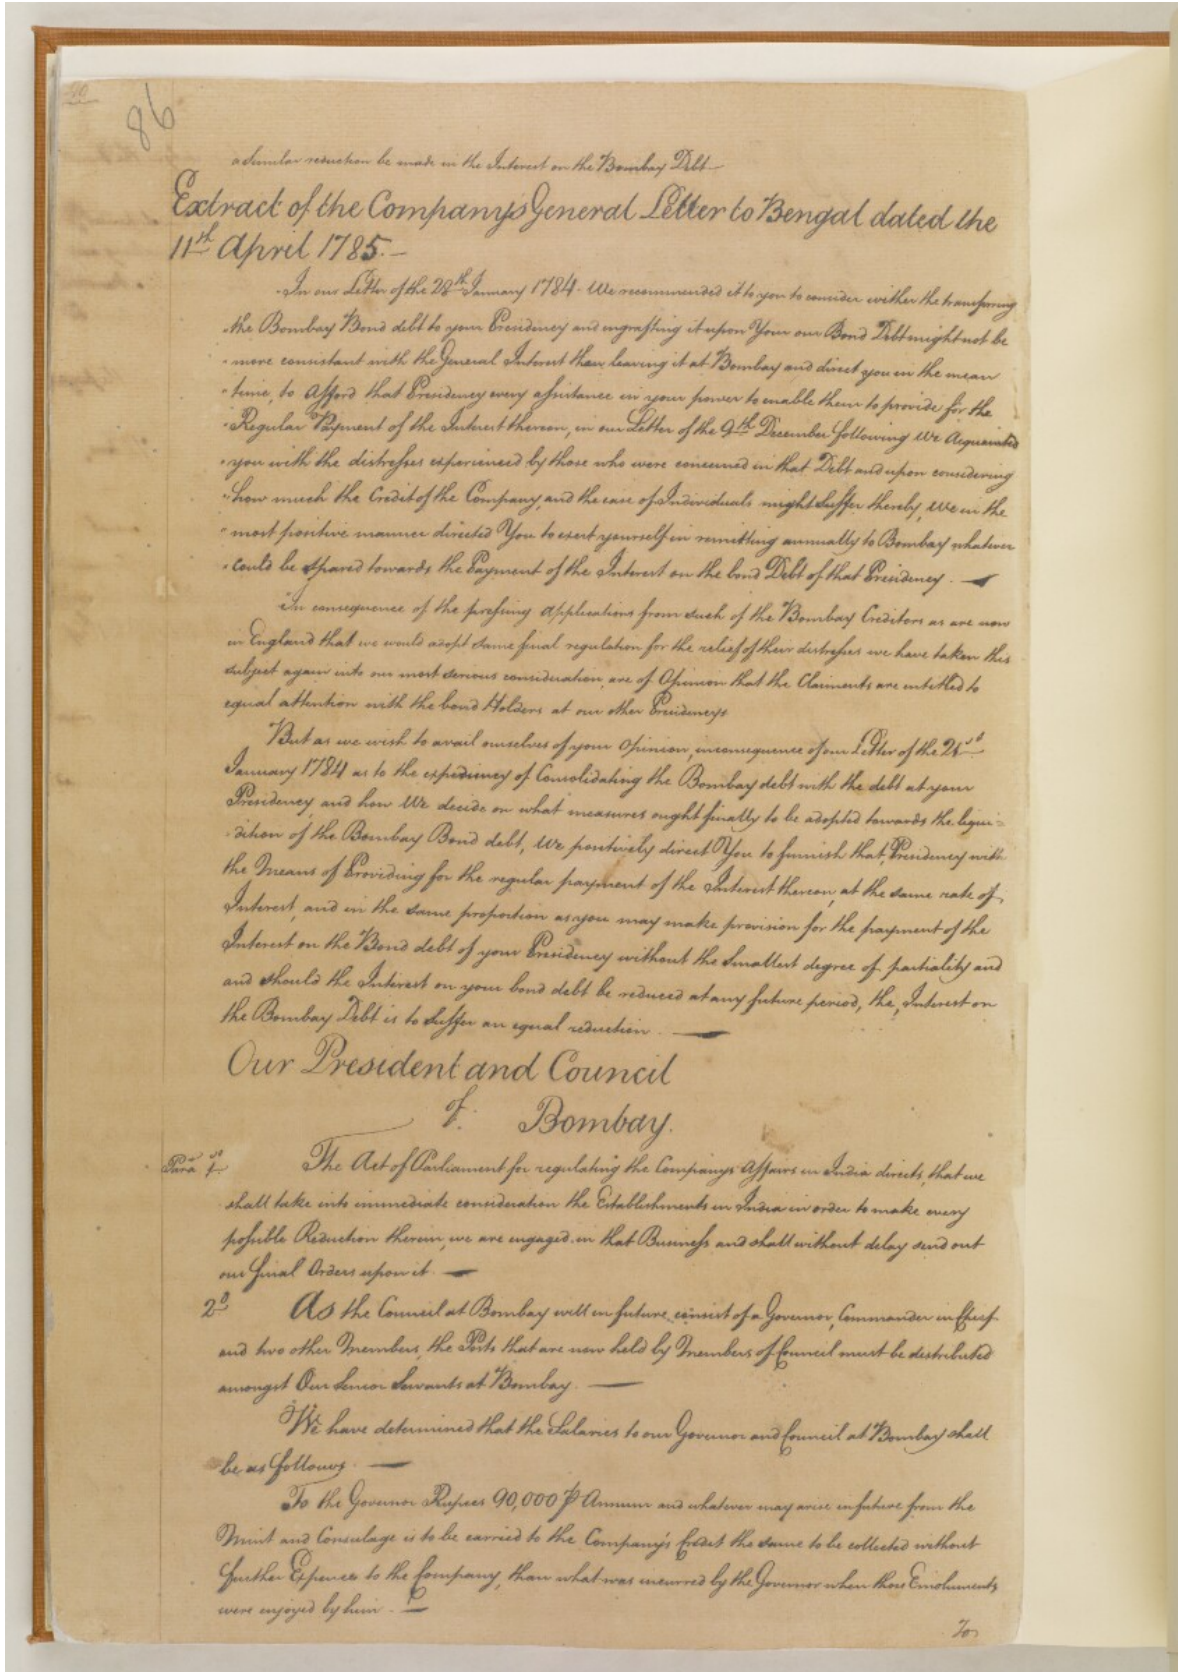 86
a Similar reduction be made in the Interest on the Bombay Debt
Extract of the Companys General Letter to Bengal dated the
11th April 1785.—
In our Letter of the 28th January 1784. We recommended it to you to consider wither the transferring
the Bombay Bond debt to your Presidency and ingrafting it upon Your own Bond Debt might not be
more consistant with the General Interest then leaving it at Bombay and direct you in the mean
time, to Afford that Presidency every assistance in your power to enable them to provide for the
Regular Payment of the Interest thereon, in our Letter of the 9th December following We Acquainted
you with the distresses experienced by those who were concerned in that Debt and upon considering
how much the Credit of the Company, and the case of Individuals might Suffer thereby, We in the
most positive manner directed You to exert yourself in remitting annually to Bombay whatever
could be Spared towards the Payment of the Interest on the bond Debt of that Presidency. —
In consequence of the pressing applications from such of the Bombay Creditors as are now
in England that we would adopt some final regulation for the relief of their distresses we have taken this
subject again into our most serious consideration, are of Opinion that the Claiments are intitled to
equal attention with the bond Holders at our other Presidencys
But as we wish to avail ourselves of your Opinion, inconsequence of our Letter of the
January 1784 as to the expediency of Consolidating the Bombay debt with the debt at your
Presidency, and how We decide on what measures ought finally to be adopted towards the liqui-
dition of the Bombay Bond debt, We positively direct You to furnish that Presidency with
the Means of Providing for the regular payment of the Interest thereon, at the same rate of
Interest, and in the same proportion as you may make provision for the payment of the
Interest on the Bond debt of your Presidency without the Smallest degree of partiality and
and should the Interest on your bond debt be reduced at any future period, the Interest on
the Bombay Debt is to Suffer an equal reduction. —
Our President and Council
of Bombay.
Para 1st The Act of Parliament for regulating the Companys Affairs in India directs, that we
shall take into immediate consideration the Establishments in India in order to make every
possible Reduction therein, we are engaged in that Business and shall without delay send out
our final Orders upon it. —
2d As the Council at Bombay will in future consist of a Governor, Commander in Chief
and two other Members, the Posts that are now held by Members of Council must be distributed
amongst Our Senior Servants at Bombay. —
We have determined that the Salaries to our Governor and Council at Bombay shall
be as follows. —
To the Governor Rupees 90,000 P Annum and whatever may arise in future from the
Mint and Consulage is to be carried to the Company's Credit the same to be collected without
further Expence to the Company, than what was incurred by the Governor when those Emoluments
were enjoyed by him. —
To